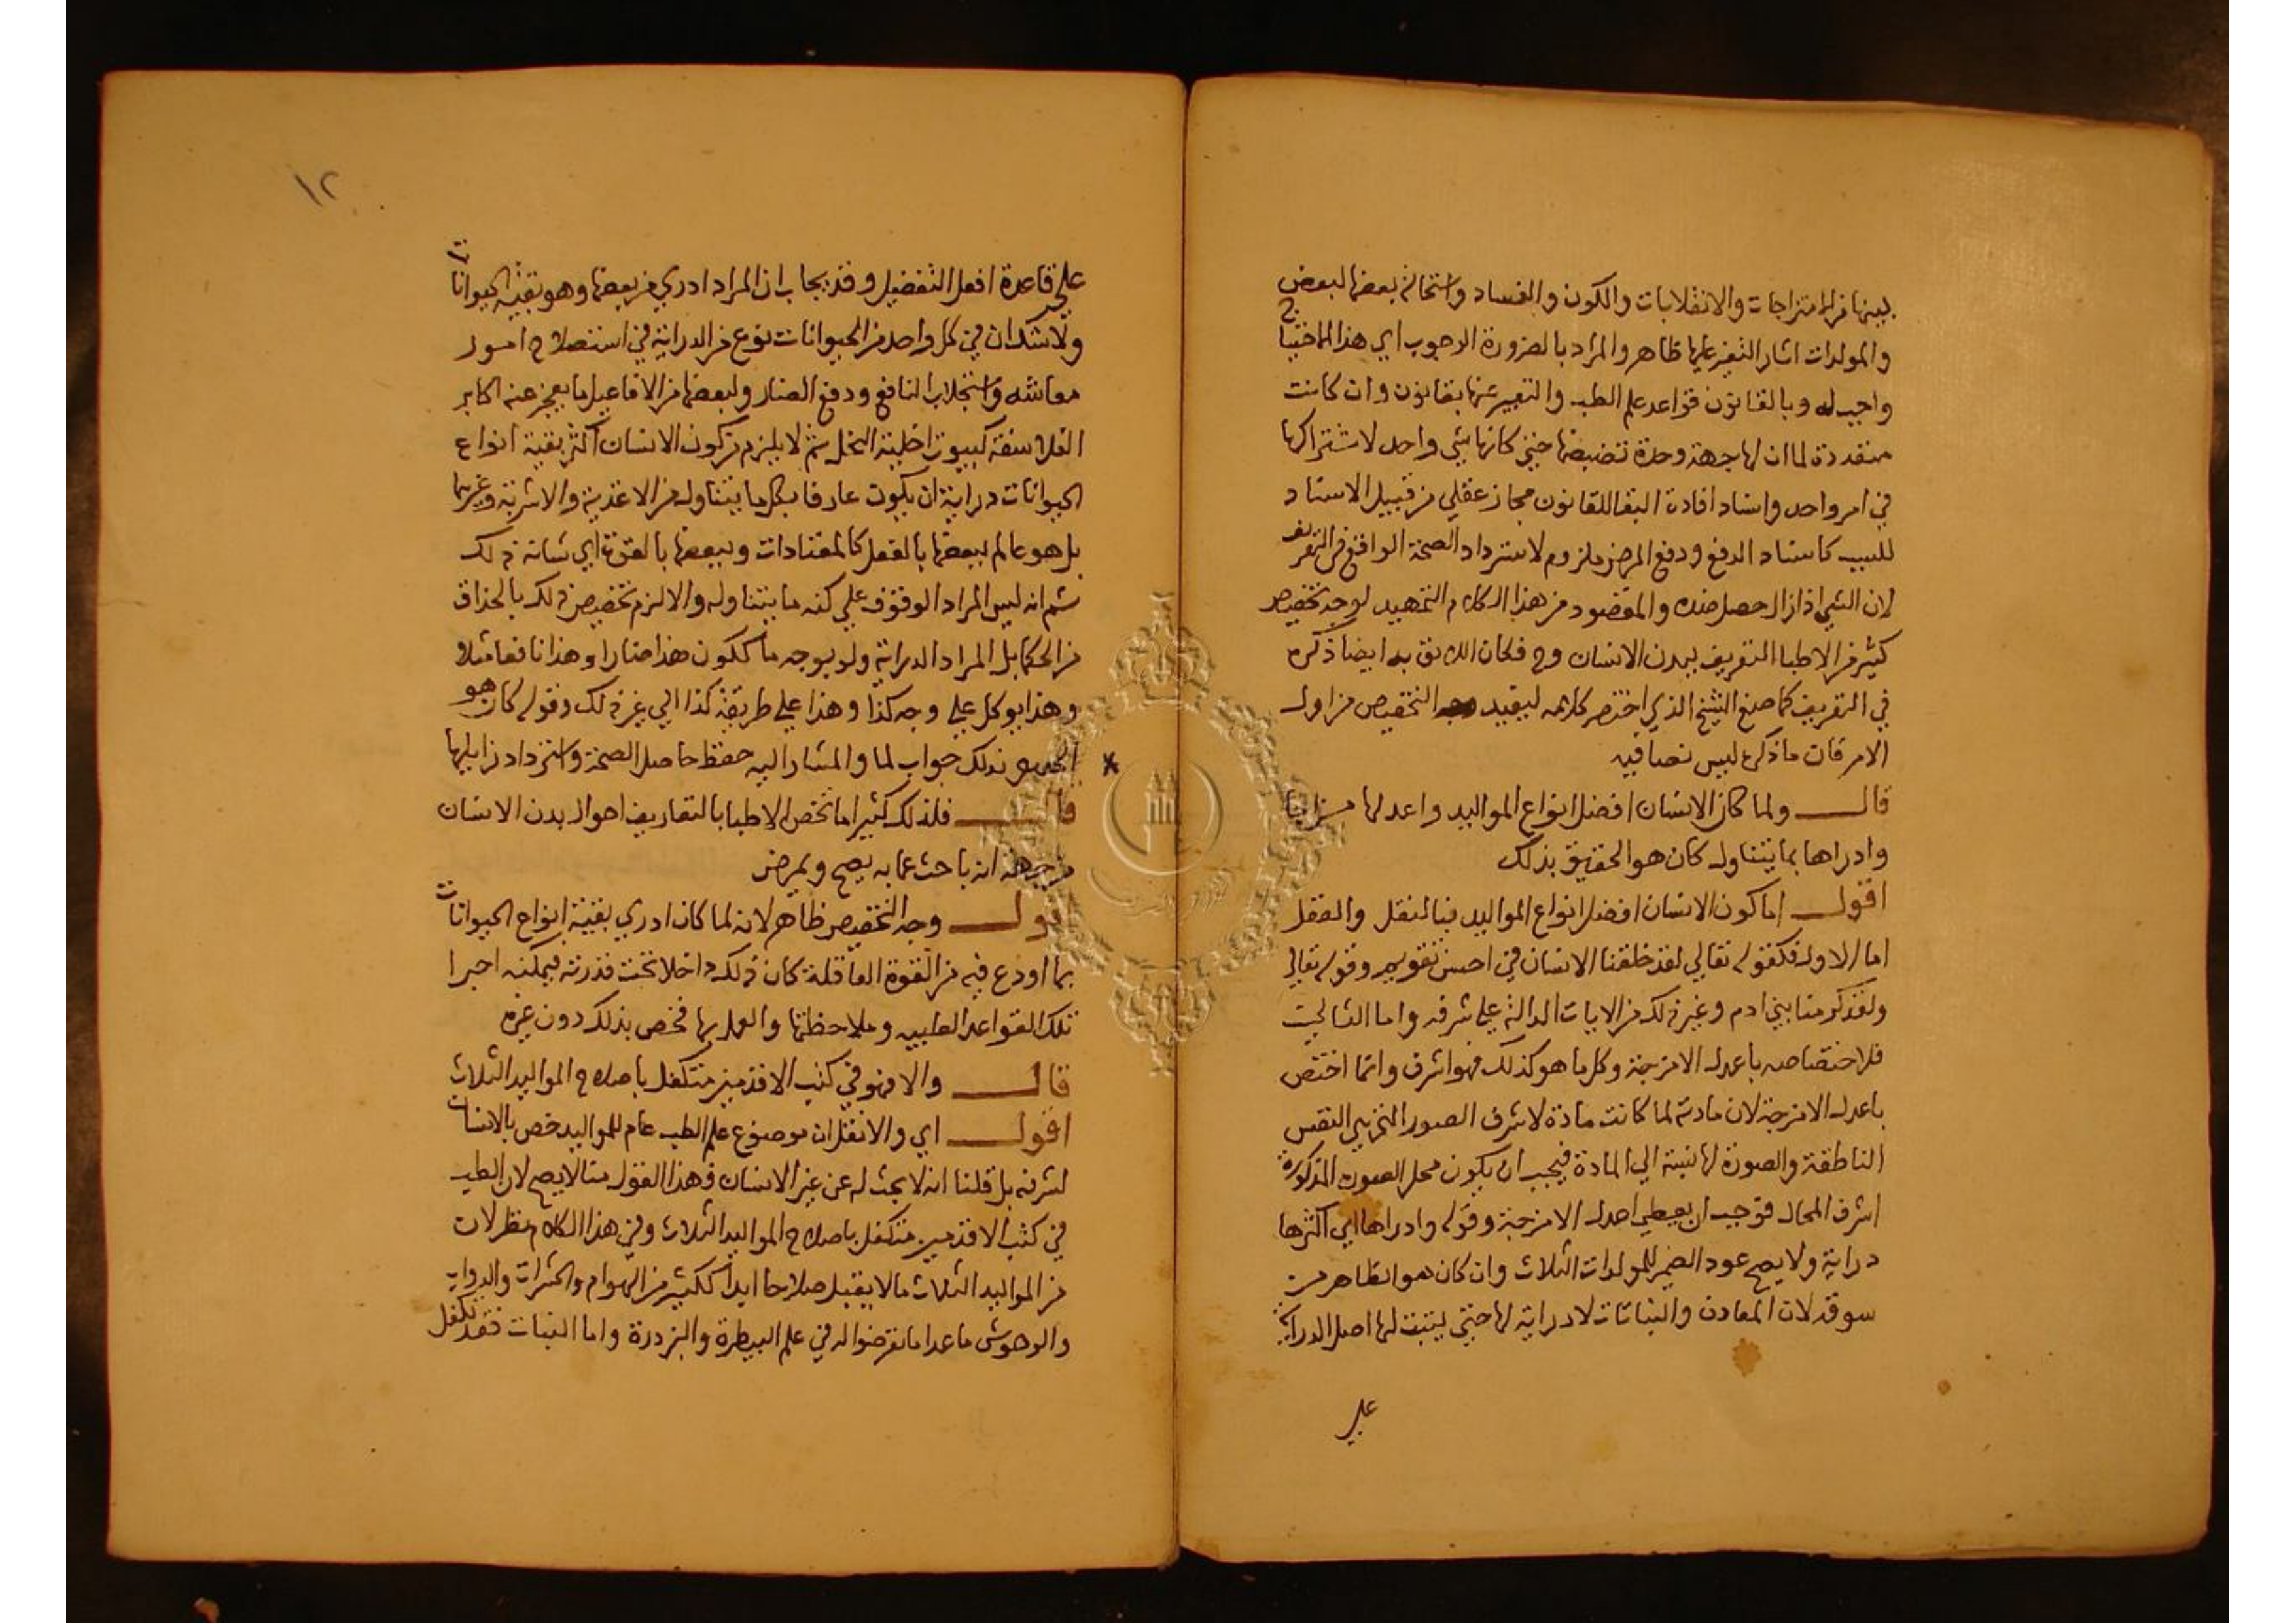 بينها من الامتزاجات والانقلابات والكون والفساد واستحالة بعضها لبعض
والمولدات اشار النفيس عليها ظاهر والمراد بالضرورة الوجوب اي هذا الاحتياج
واجب له وبالقانون قواعد علم الطب والتعبير عنها بقانون وان كانت
متعددة لما ان لها جهة وحدة تضبطها حتى كانها شي واحد لاشتراكها
في امر واحد واسناد افادة البقا للقانون مجاز عقلي من قبيل الاسناد
للسبب كاسناد الدفع ودفع المرض ملزوم لاسترداد الصحة الواقع في التعريف
لان الشي اذا زال حصل ضده والمقصود من هذا الكلام التمهيد لوجه تخصيص
كثير من الاطبا التعريف ببدن الانسان وح فكان اللايق به ايضا ذكره
في التعريف كما صنع الشيخ الذي اختصر كلامه ليفيد وجه التخصيص من اول
الامر فان ما ذكره ليس نصا فيه
قال ولما كان الانسان افضل انواع المواليد واعدلها مزاجا
وادراها بما يتناول كان هو الحقيق بذلك
اقول اما كون الانسان افضل انواع المواليد فبالنقل والعقل
اما الاول فكقوله تعالي لقد خلقنا الانسان في احسن تقويم وقوله تعالي
ولقد كرمنا بني ادم وغير ذلك من الايات الدالة علي شرفه واما الثاني
فلاختصاصه باعدل الامزجة وكل ما هو كذلك فهو اشرف وانما اختص
باعدل الامزجة لان مادته لما كانت مادة لاشرف الصور التي هي النفس
الناطقة والصورة لها نسبة الي المادة فيجب ان يكون محل الصورة المذكورة
اشرف المحال فوجب ان يعطي اعدل الامزجة وقوله وادراها اي اكثرها
دراية ولا يصح عود الضمير للمولدات الثلاث وان كان هو الظاهر من
سوقه لان المعادن والنباتات لا دراية لها حتى يثبت لها اصل الدراية
علي
١٢
علي قاعدة افعل التفضيل وقد يجاب ان المراد ادري من بعضها وهو بقية الحيوانات
ولا شك ان في كل واحد من الحيوانات نوع من الدراية في استصلاح امور
معاشه واستجلاب النافع ودفع الضار ولبعضها من الافاعيل ما يعجز عنه اكابر
الفلاسفة كبيوت اخلية النحل ثم لا يلزم من كون الانسان اكثر بقية انواع
الحيوانات دراية ان يكون عارفا بكل ما يتناوله من الاغذية والاشربة وغيرهما
بل هو عالم ببعضها بالفعل كالمعتادات وببعضها بالقوة اي شانه ذلك
ثم انه ليس المراد الوقوف علي كنه ما يتناوله والا لزم تخصيص ذلك بالحذاق
من الحكما بل المراد الدراية ولو بوجه ما ككون هذا ضارا وهذا نافعا مثلا
وهذا يوكل علي وجه كذا وهذا علي طريقة كذا الي غير ذلك وقوله كان هو
الحقيق بذلك جواب لما والمشار اليه حفظ حاصل الصحة واسترداد زايلها
قال فلذلك كثيرا ما تخص الاطبا بالتعاريف احوال بدن الانسان
من جهة انه باحث عما به يصح ويمرض
اقول وجه التخصيص ظاهر لانه لما كان ادري بقية انواع الحيوانات
بما اودع فيه من القوة العاقلة كان ذلك داخلا تحت قدرته فيمكنه اجرا
تلك القواعد الطبيه وملاحظتها والعمل بها فخص بذلك دون غيره
قال والا فهو في كتب الاقدمين متكفل باصلاح المواليد الثلاث
اقول اي والا نقل ان موضوع علم الطب عام للمواليد خص بالانسان
لشرفه بل قلنا انه لا يحث له عن غير الانسان فهذا القول منا لا يصح لان الطب
في كتب الاقدمين متكفل باصلاح المواليد الثلاث وفي هذا الكلام نظر لان
من المواليد الثلاث ما لا يقبل صلاحا ابدا ككثير من الهوام والحشرات والدواب
والوحوش ما عدا ما تعرضوا له في علم البيطرة والبزدرة واما النبات فقد تكفل